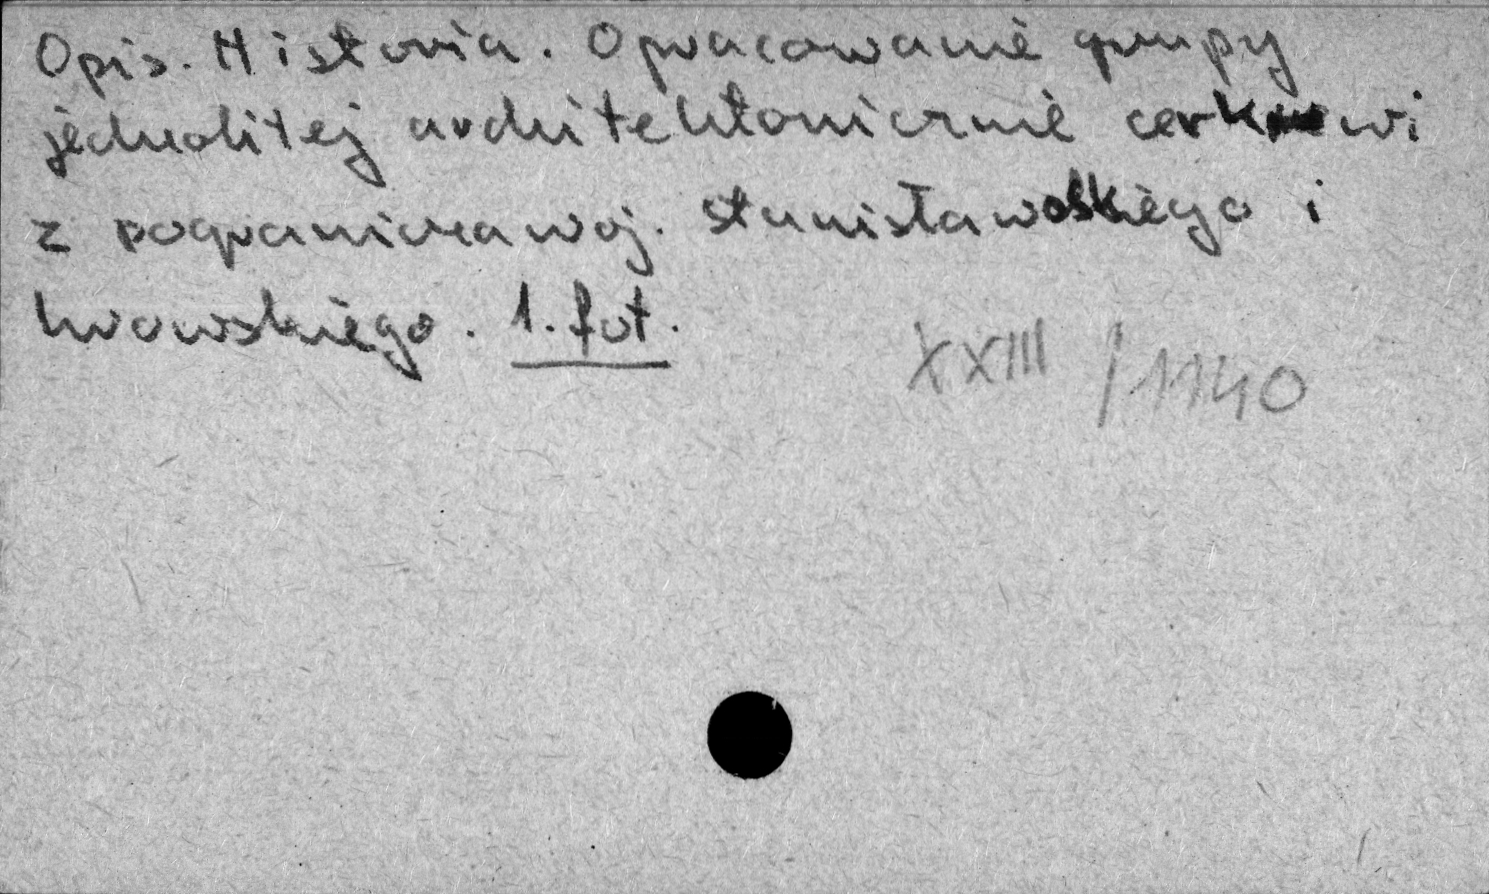 Opis. Historia. Opracowanie grupy
jednolitej architektonicznie cerkwi
z pogranicza woj. stanisławskiego i
lwowskiego. 1. fot.
XXIII / 1140